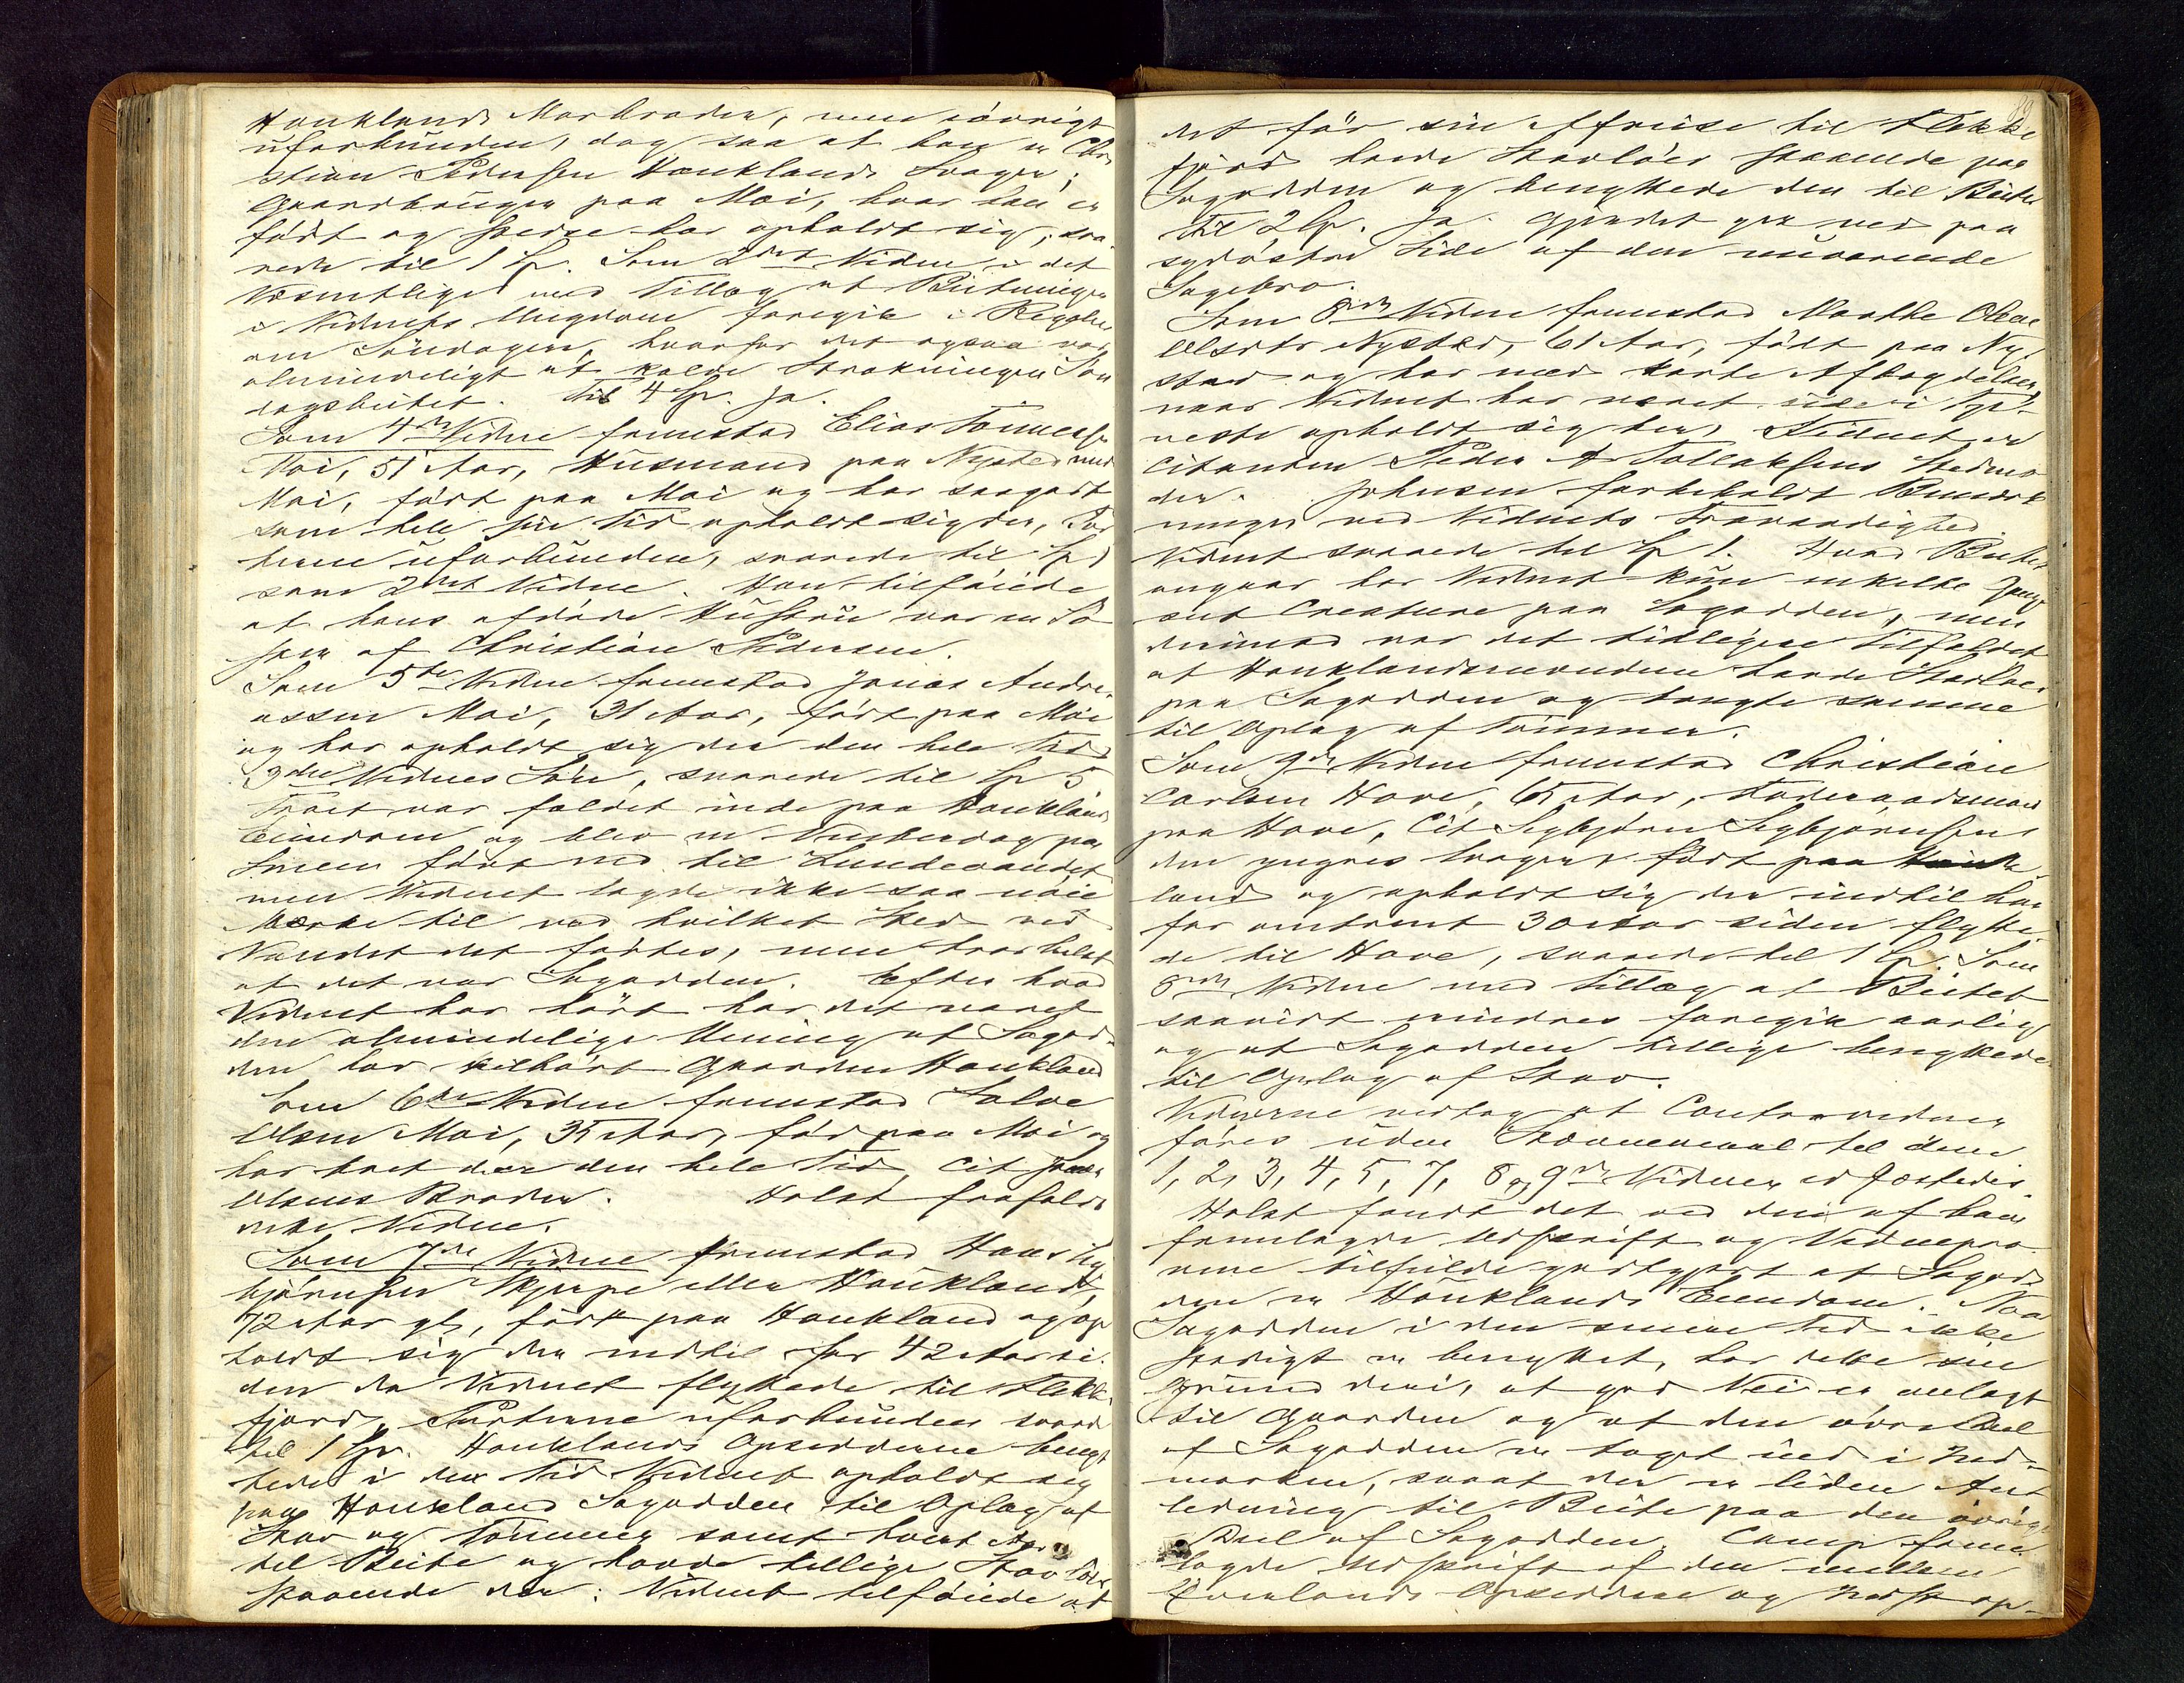 Houklands Morbroder, men iøvrigt
uforbunden, dog saa at han er Chri
stian Pedersen Houklands Svoger;
Gaardbruger paa Moi, hvor han er
født og stedse har opholdt sig; sva
rede til 1 Sp. Som 2det Vidne i det
Væsentlige med Tillæg at Beitningen
i Vidnets Ungdom foregik i Regelen
om Søndagen, hvorfor det ogsaa var
almindeligt at kalde Strækningen Søn
dagsbeitet. Til 4 Sp. Ja.
Som 4de Vidne fremstod Elias Tønnessen
Moi, 51 Aar, Huusmand paa Nysted under
Moi, født paa Moi og har saagodt
som hele sin Tid opholdt sig der, Par
terne uforbunden, svarede til Sp 1
som 2det Vidne. Han tilføiede
at hans afdøde Hustru var en Sø
ster af Christian Pedersen.
Som 5te Vidne fremstod Jonas Andre
assen Moi, 31 Aar, født paa Moi
og har opholdt sig der den hele Tid
3die Vidnes Søn, svarede til Sp 5
Træet var faldet inde paa Houklands
Eiendom og blev en Vinterdag paa
Sneen ført ned til Lundevandet
men Vidnet lagde ikke saa nøie
Mærke til ved hvilket Sted ved
Vandet det førtes, men troer helst
at det var Sagodden. Efter hvad
Vidnet har hørt har det været
den almindelige Mening at Sagod-
den har tilhørt Gaarden Houkland
Som 6te Vidne fremstod Salve
Olsen Moi, 35 Aar, født paa Moi og
har boet der den hele Tid, Cit Jonas
Olsens Broder. Holst frafaldt
dette Vidne.
Som 7de Vidne fremstod Hans Sig
bjørnsen Skjerpe eller Houkland,
72 Aar gl, født paa Houkland og op
holdt sig der indtil for 42 Aar si-
den da Vidnet flyttede til Flekke
fjord, Parterne uforbunden svared
til 1 Sp. Houklands Opsiddere benyt
tede i den Tid Vidnet opholdt sig
paa Houkland Sagodden til Oplag af
Stav og Tømmer samt hvert Aar
til Beite og havde tillige Stavløer
staaende der. Vidnet tilføiede at
det før sin Afreise til Flekke
fjord havde Stavløer staaende paa
Sagodden og benyttede den til Beite
Til 2 Sp. Ja. Gjerdet gik ned paa
sydøstre Side af den nuværende
Sagebro.
Som 8de Vidne fremstod Marthe Olene
Olsdtr Nysted, 61 Aar, født paa Ny-
sted og har med korte Afbrydelser,
naar Vidnet har været ude i Tje-
neste opholdt sig her, Vidnet er
Citanten Peder A Tollaksens Stedmo
der. Johnsen forbeholdt Bemærk
ninger ved Vidnets Troværdighed.
Vidnet svarede til Sp 1. Hvad Beitet
angaar har Vidnet kun enkelte Gange
seet Creature paa Sagodden, men
derimod var det tidligere Tilfældet
at Houklandsmændene havde Stavløer
paa Sagodden og brugte samme
til Oplag af Tømmer.
Som 9de Vidne fremstod Christian
Carlsen Hove, 65 Aar, Føderaadsmand
paa Hove, Cit Sigbjørn Sigbjørnsens
den yngres Svoger, født paa Houk
land og opholdt sig der indtil han
for omtrent 30 Aar siden flytte
de til Hove, svarede til 1 Sp. Som
8de Vidne med Tillæg at Beitet
saavidt mindes foregik aarlig
og at Sagodden tillige benyttedes
til Oplag af Stav.
Vidnerne vedtog at Contravidner
føres uden Stævnemaal til dem
1, 2, 3, 4, 5, 7, 8 og 9de Vidner edfæstedes.
Holst fandt det ved den af ham
fremlagde Udskrift og Vidnepro
verne tilfulde godtgjort at Sagod-
den er Houklands Eiendom. Naar
Sagodden i den senere Tid ikke
stadigt er benyttet, har dette sin
Grund deri, at god Vei er anlagt
til Gaarden og at den øvre Deel
af Sagodden er taget ind i Ind-
marken, saaat der er liden An
ledning til Beite paa den øvrige
Deel af Sagodden. Comp frem
lagde Udskrift af den mellem
Houklands Opsiddere og Indst op-